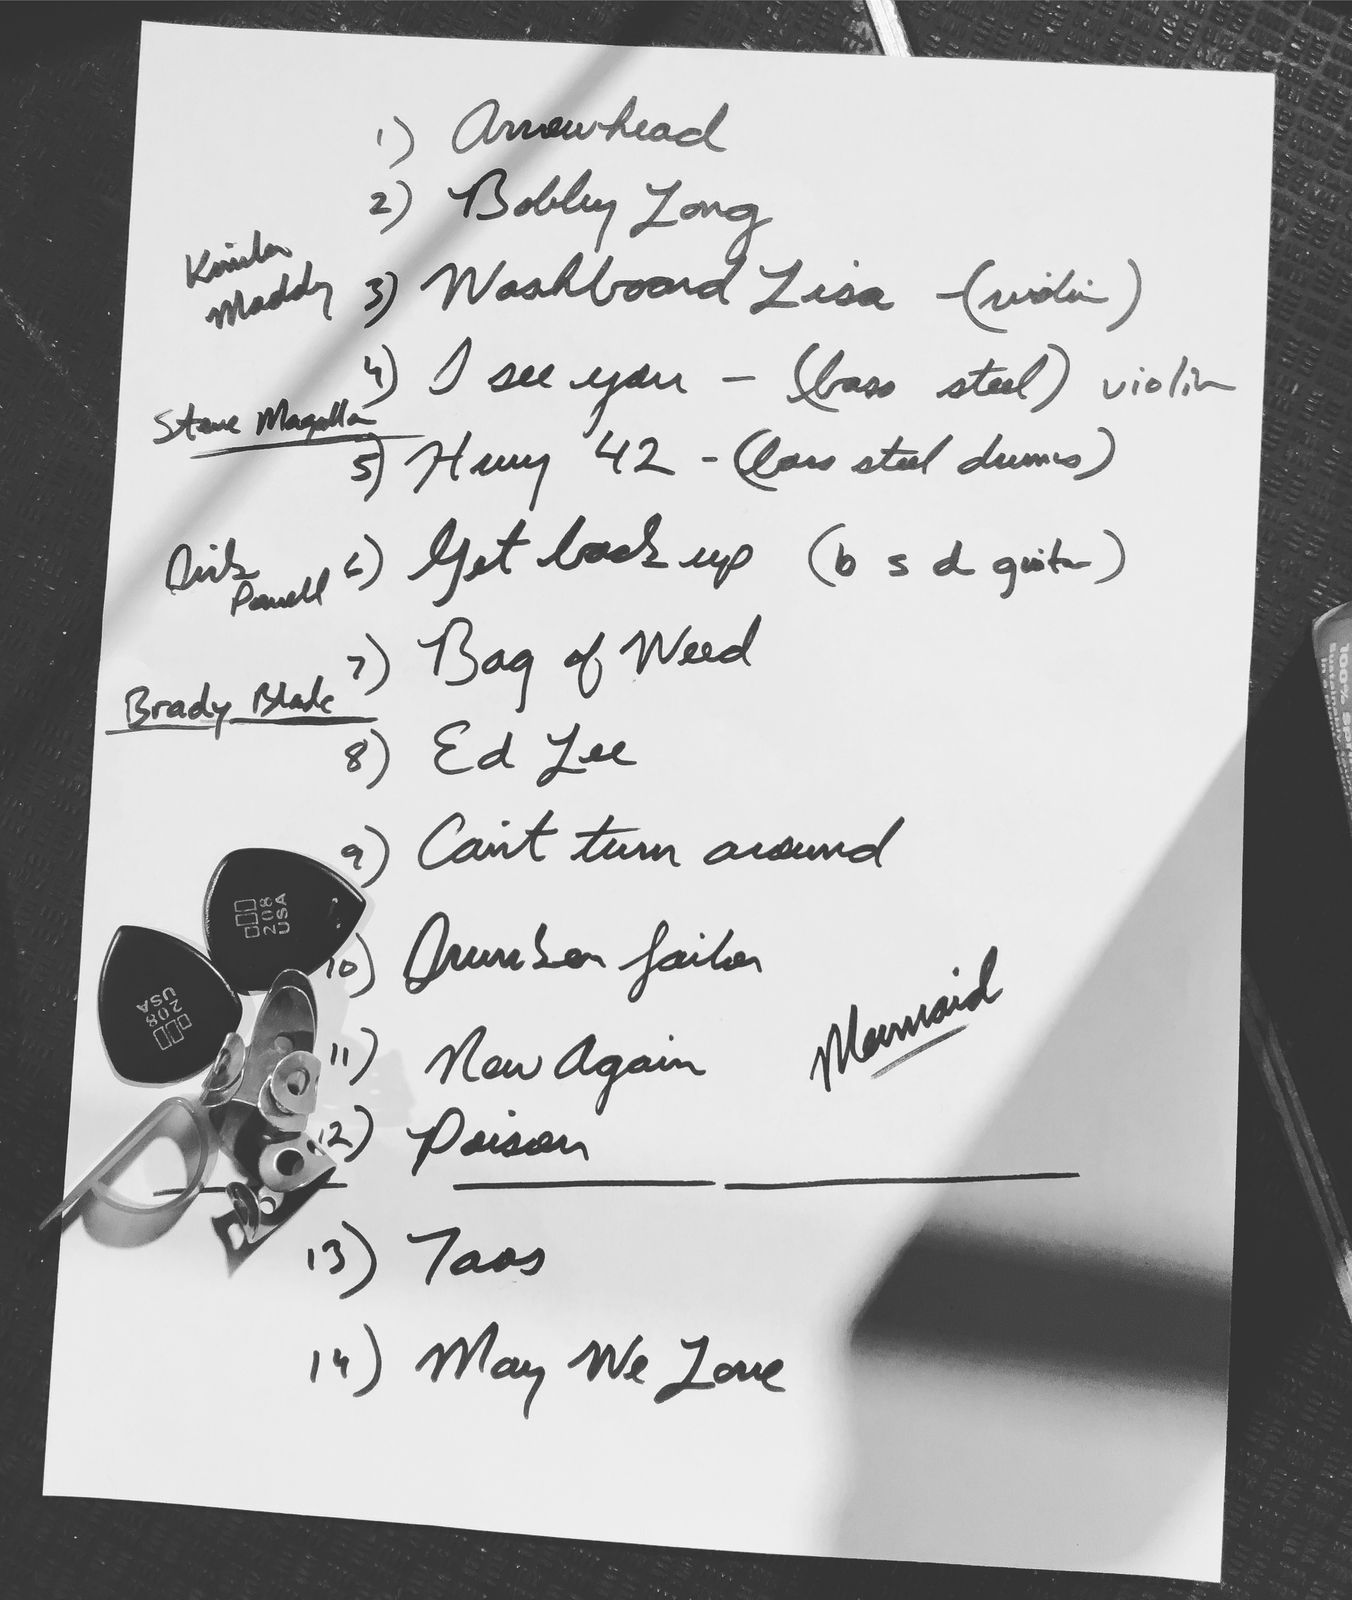 1) Arrowhead
2) Bobby Long
Maddy
3) Washboard Lisa - (violin)
4) I see you - (bass steel) violin
Steve
5) Hwy 42 - (bass steel drums)
Dirk
Powell
6) Get back up (b s d guitar)
7) Bag of Weed
Brady Blade
8) Ed Lee
9) Can't turn around
10) Drunken Sailor
11) New Again
Mermaid
12) Poison
13) Taos
14) May We Love
208
USA
208
USA
100%